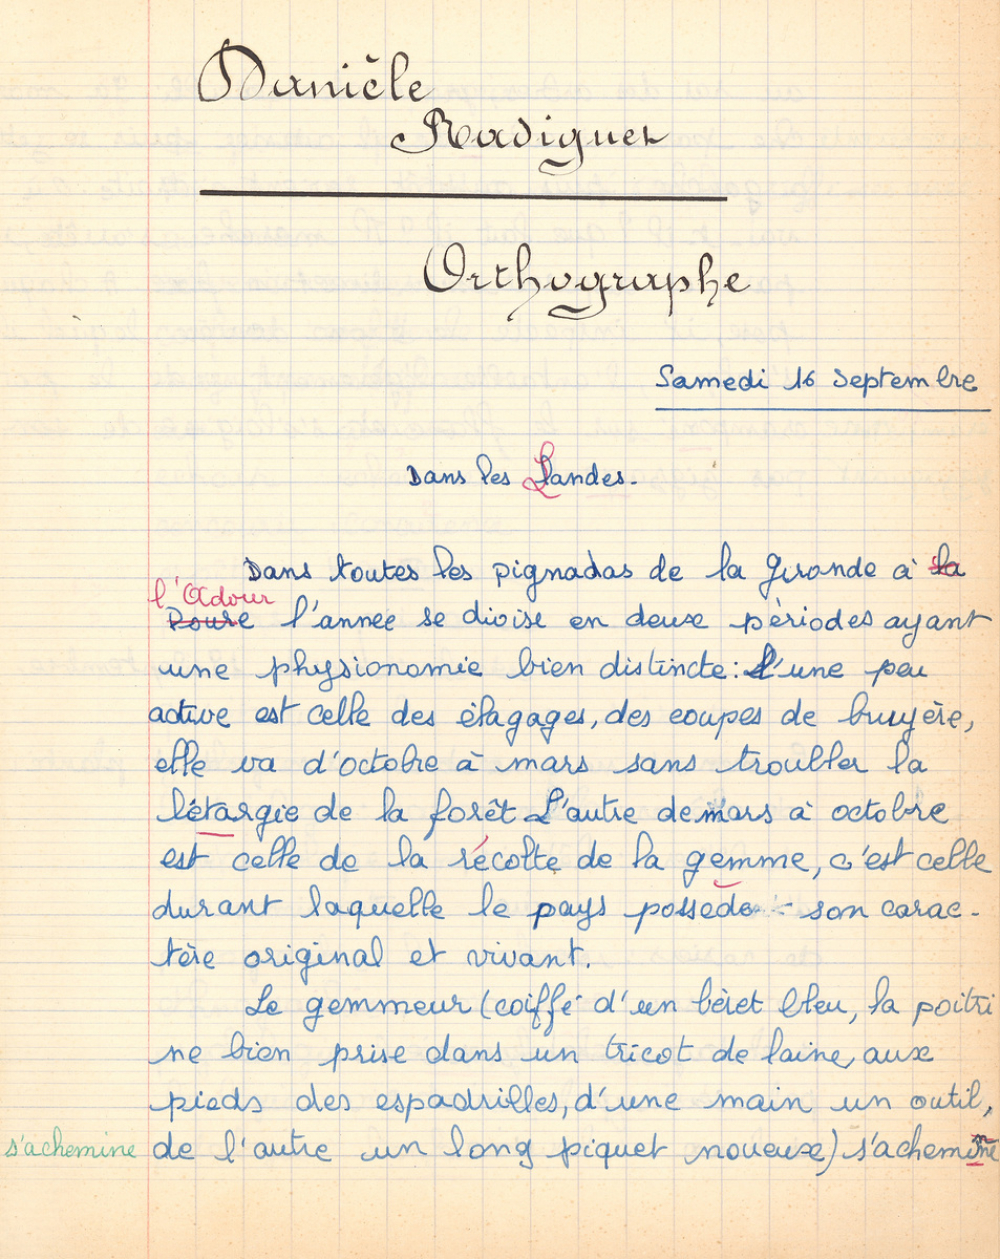 Danièle
Radiguet
Orthographe
Samedi 16 Septembre
Dans les Landes.
Dans toutes les pignadas de la Gironde à la
l'Adour
Doure l'année se divise en deux périodes ayant
une physionomie bien distincte: L'une peu
active est celle des élagages, des coupes de bruyère,
elle va d'octobre à mars sans troubler la
létargie de la forêt L'autre de mars à octobre
est celle de la récolte de la gemme, c'est celle
durant laquelle le pays possede - son carac-
tère original et vivant.
Le gemmeur (coiffé d'un béret bleu, la poitri
ne bien prise dans un tricot de laine, aux
pieds des espadrilles, d'une main un outil,
s'achemine de l'autre un long piquet noueux) s'achemine